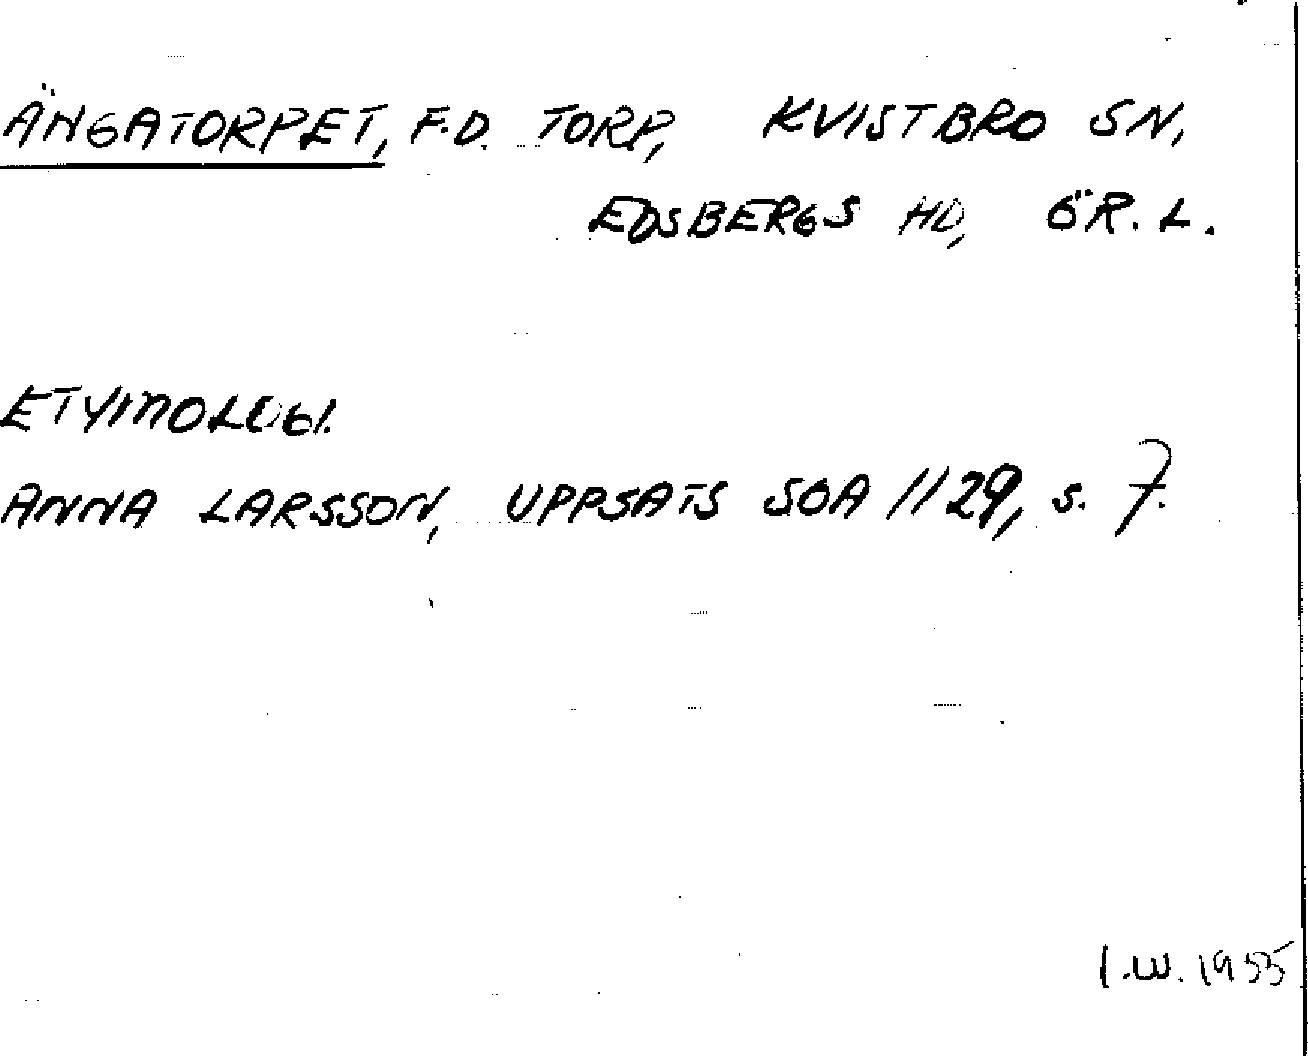 ÄNGATORPET, F.D. TORP, KVISTBRO SN,
EDSBERGS HD, ÖR. L.
ETYMOLOGI.
ANNA LARSSON, UPPSATS SOA 1129, s. 7.
I.W. 1955